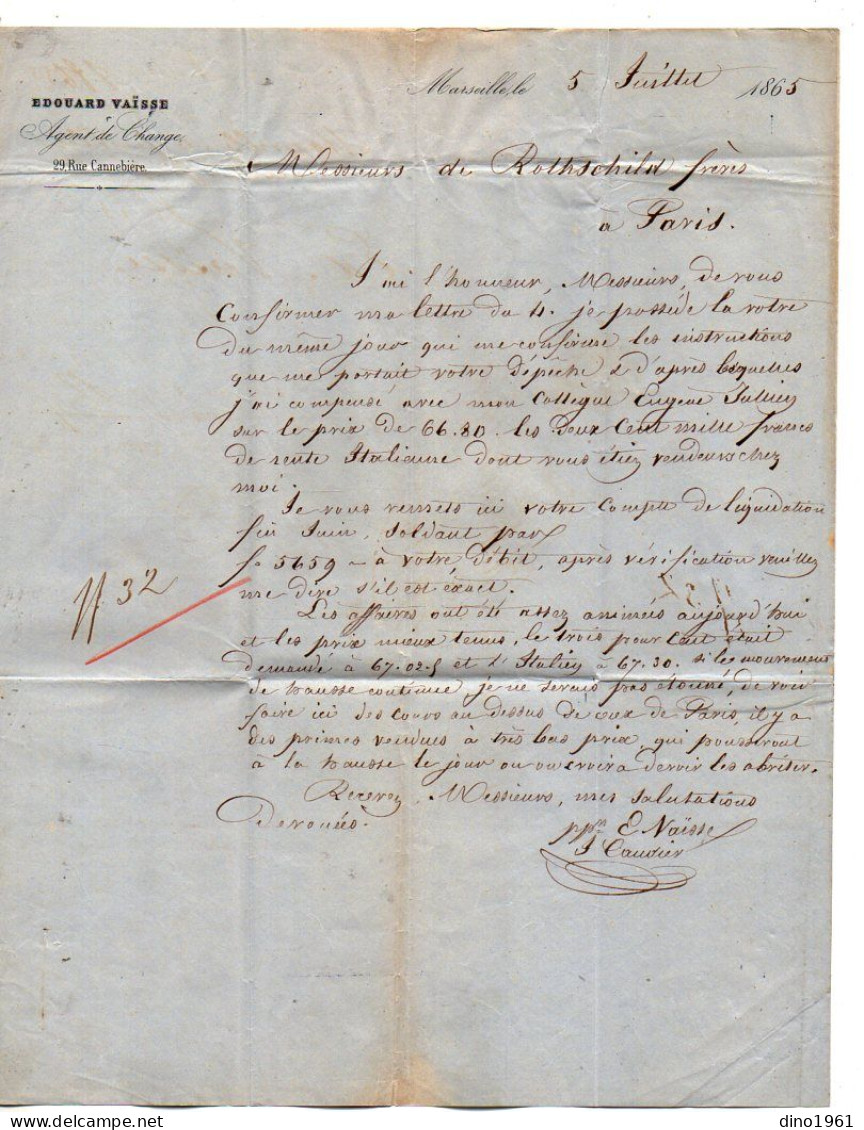 EDOUARD VAÏSSE
Agent de Change.
29, Rue Cannebière.
Marseille, le 5 Juillet 1865
Messieurs de Rothschild frères
à Paris.
J'ai l'honneur, Messieurs, de vous
Confirmer ma lettre du 4. je possède la votre
du même jour qui me confirme les instructions
que me portait votre dépêche & d'après lesquelles
j'ai compensé avec mon Collègue Eugène Jullien
sur le prix de 66.80. les deux Cent mille francs
de rente Italienne dont vous étiez vendeurs chez
moi.
Je vous remets ici votre Compte de liquidation
fin Juin, soldant par
fs 5659 - à votre débit, après vérification veuillez
me dire s'il est exact.
32
Les affaires ont été assez animées aujourd'hui
et les prix mieux tenus, le trois pour Cent était
demandé à 67.02.5 et l'Italien à 67.30. si le mouvement
de hausse continue je ne serais pas étonné, de voir
faire ici des cours au dessus de ceux de Paris, il y a
des primes vendues à très bas prix, qui pousseront
à la hausse le jour ou on croira devoir les abriter.
Recevez, Messieurs, mes salutations
Devouées.
ppon E. Vaïsse
J Caudier
dino1961